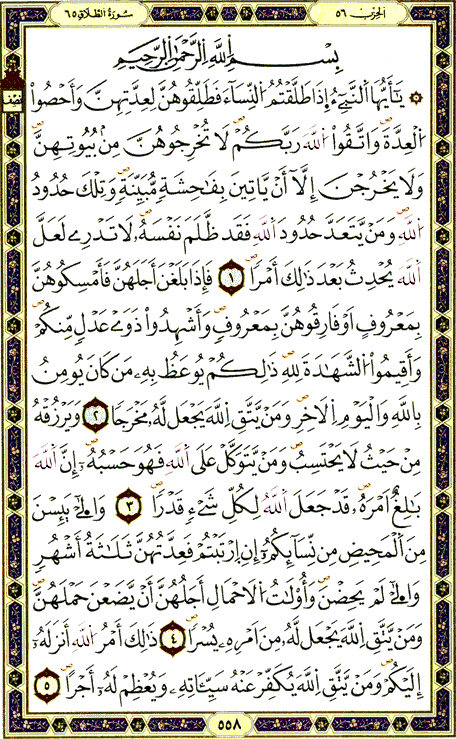 الحزب ٥٦
سُورَةُ الطَّلَاقِ ٦٥
بِسْمِ اللَّهِ الرَّحْمَٰنِ الرَّحِيمِ
يَٰٓأَيُّهَا اَ۬لنَّبِيٓءُ اِ۪ذَا طَلَّقْتُمُ اُ۬لنِّسَآءَ فَطَلِّقُوهُنَّ لِعِدَّتِهِنَّ وَأَحْصُواْ
نصف
اُ۬لْعِدَّةَ وَاتَّقُواْ اُ۬للَّهَ رَبَّكُمْ لَا تُخْرِجُوهُنَّ مِنۢ بُيُوتِهِنَّ
وَلَا يَخْرُجْنَ إِلَّآ أَنْ يَّاتِينَ بِفَٰحِشَةٖ مُّبَيِّنَةٖ وَتِلْكَ حُدُودُ
اُ۬للَّهِ وَمَنْ يَّتَعَدَّ حُدُودَ اَ۬للَّهِ فَقَد ظَّلَمَ نَفْسَهُۥ لَا تَدْرِے لَعَلَّ
اَ۬للَّهَ يُحْدِثُ بَعْدَ ذَٰلِكَ أَمْراٗ ١ فَإِذَا بَلَغْنَ أَجَلَهُنَّ فَأَمْسِكُوهُنَّ
بِمَعْرُوفٍ اَوْ فَارِقُوهُنَّ بِمَعْرُوفٖ وَأَشْهِدُواْ ذَوَےْ عَدْلٖ مِّنكُمْ
وَأَقِيمُواْ اُ۬لشَّهَٰدَةَ لِلهِ ذَٰلِكُمْ يُوعَظُ بِهِۦ مَن كَانَ يُومِنُ
بِاللَّهِ وَالْيَوْمِ اِ۬لَاخِرِ وَمَنْ يَّتَّقِ اِ۬للَّهَ يَجْعَل لَّهُۥ مَخْرَجاٗ ٢ وَيَرْزُقْهُ
مِنْ حَيْثُ لَا يَحْتَسِبُ وَمَنْ يَّتَوَكَّلْ عَلَى اَ۬للَّهِ فَهُوَ حَسْبُهُۥٓ إِنَّ اَ۬للَّهَ
بَٰلِغٌ اَمْرَهُۥ قَدْ جَعَلَ اَ۬للَّهُ لِكُلِّ شَےْءٖ قَدْراٗ ٣ وَالَٰٓـِٔے يَئِسْنَ
مِنَ اَ۬لْمَحِيضِ مِن نِّسَآئِكُمُۥٓ إِنِ اِ۪رْتَبْتُمْ فَعِدَّتُهُنَّ ثَلَٰثَةُ أَشْهُرٖ
وَالَٰٓـِٔے لَمْ يَحِضْنَ وَأُوْلَٰتُ اُ۬لَاحْمَالِ أَجَلُهُنَّ أَنْ يَّضَعْنَ حَمْلَهُنَّ
وَمَنْ يَّتَّقِ اِ۬للَّهَ يَجْعَل لَّهُۥ مِنَ اَمْرِهِۦ يُسْراٗ ٤ ذَٰلِكَ أَمْرُ اُ۬للَّهِ أَنزَلَهُۥٓ
إِلَيْكُمْ وَمَنْ يَّتَّقِ اِ۬للَّهَ يُكَفِّرْ عَنْهُ سَيِّـَٔاتِهِۦ وَيُعْظِمْ لَهُۥٓ أَجْراٗ ٥
٥٥٨